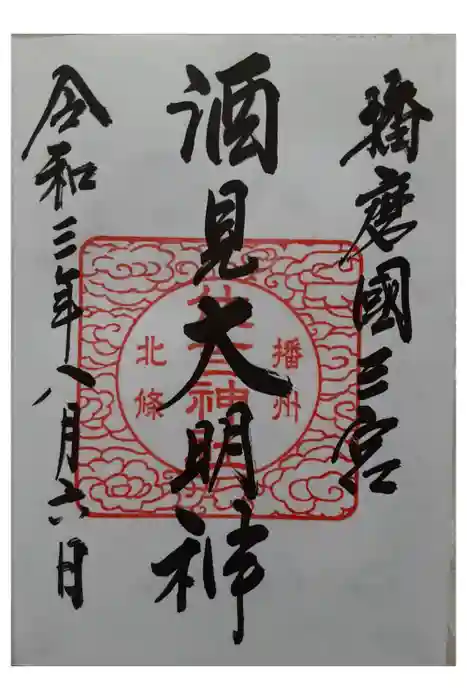 播磨國三宮
酒見大明神
令和三年八月六日
播州
住吉神社
北條